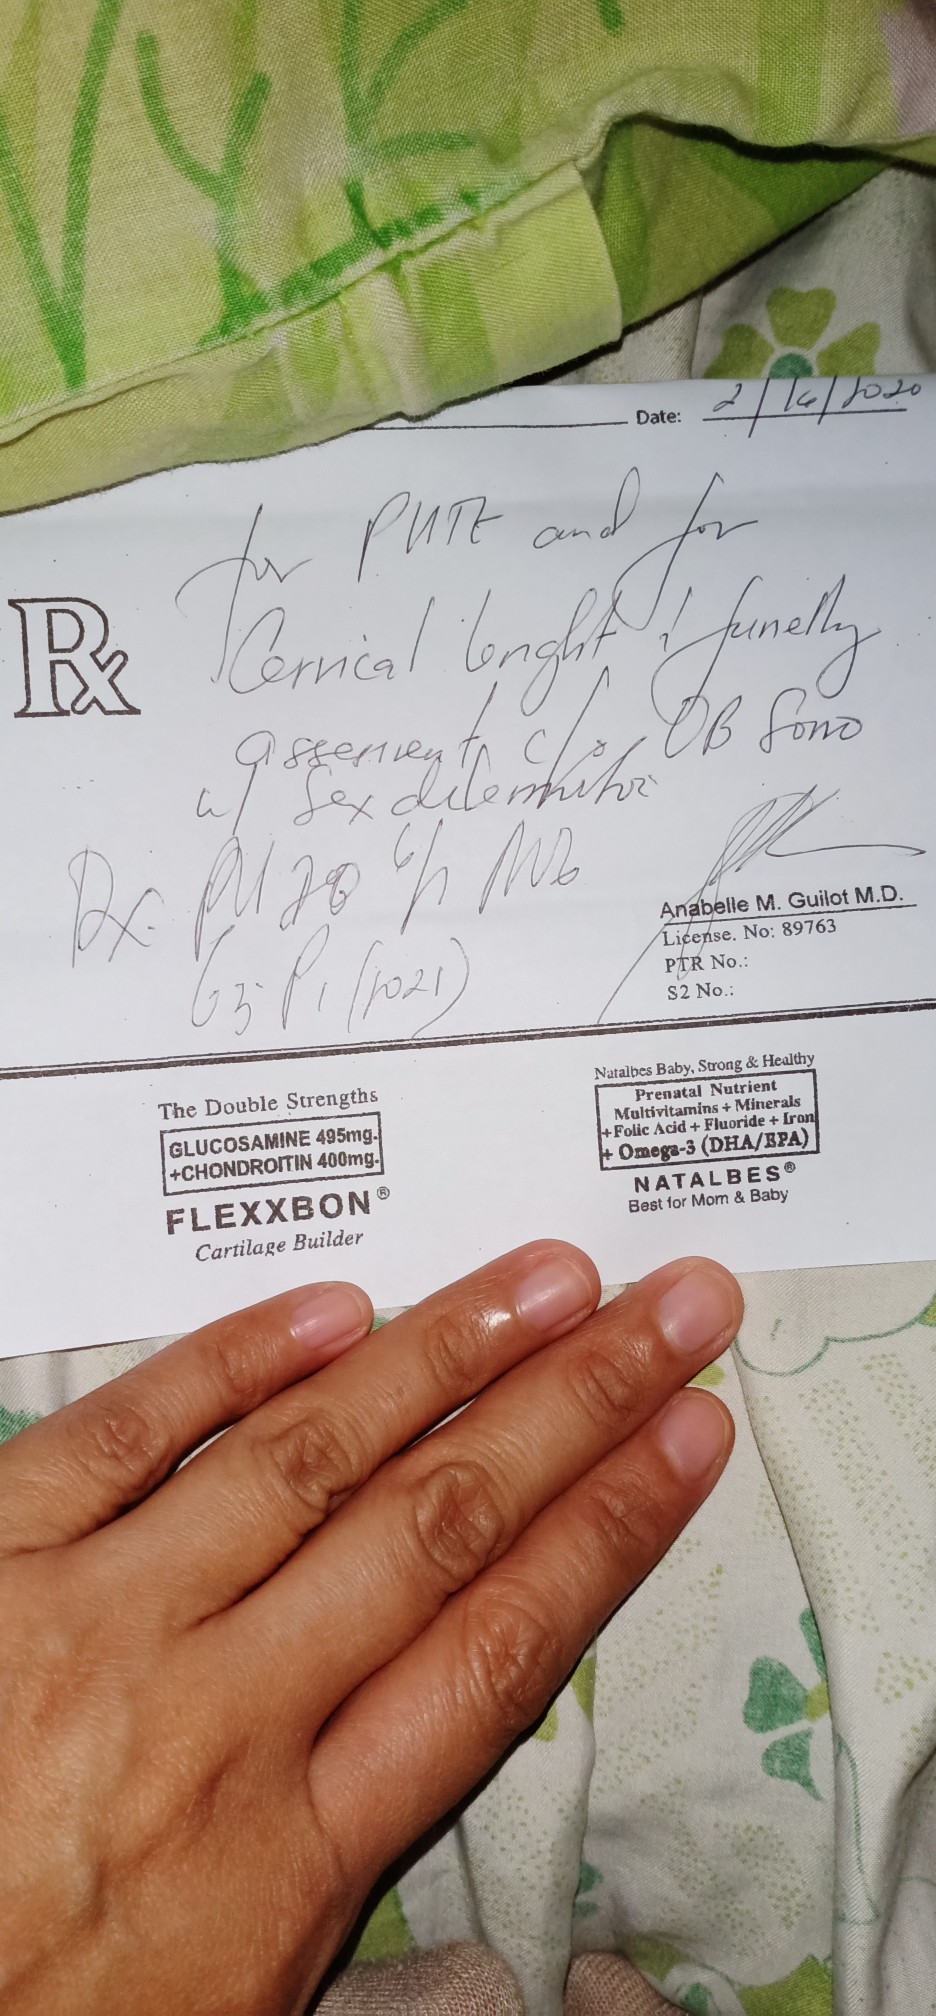 Date: 2/16/2020
for PUTZ and for
Cervical lenght & funelly
assesment c/o OB Sono
w/ sex
Dx. PU 20 NB
G3 P1 (1021)
Rx
Anabelle M. Guilot M.D.
License. No: 89763
PTR No.:
S2 No.:
The Double Strengths
GLUCOSAMINE 495mg.
+CHONDROITIN 400mg.
FLEXXBON®
Cartilage Builder
Natalbes Baby, Strong & Healthy
Prenatal Nutrient
Multivitamins + Minerals
+Folic Acid + Fluoride + Iron
+ Omega-3 (DHA/EPA)
NATALBES®
Best for Mom & Baby